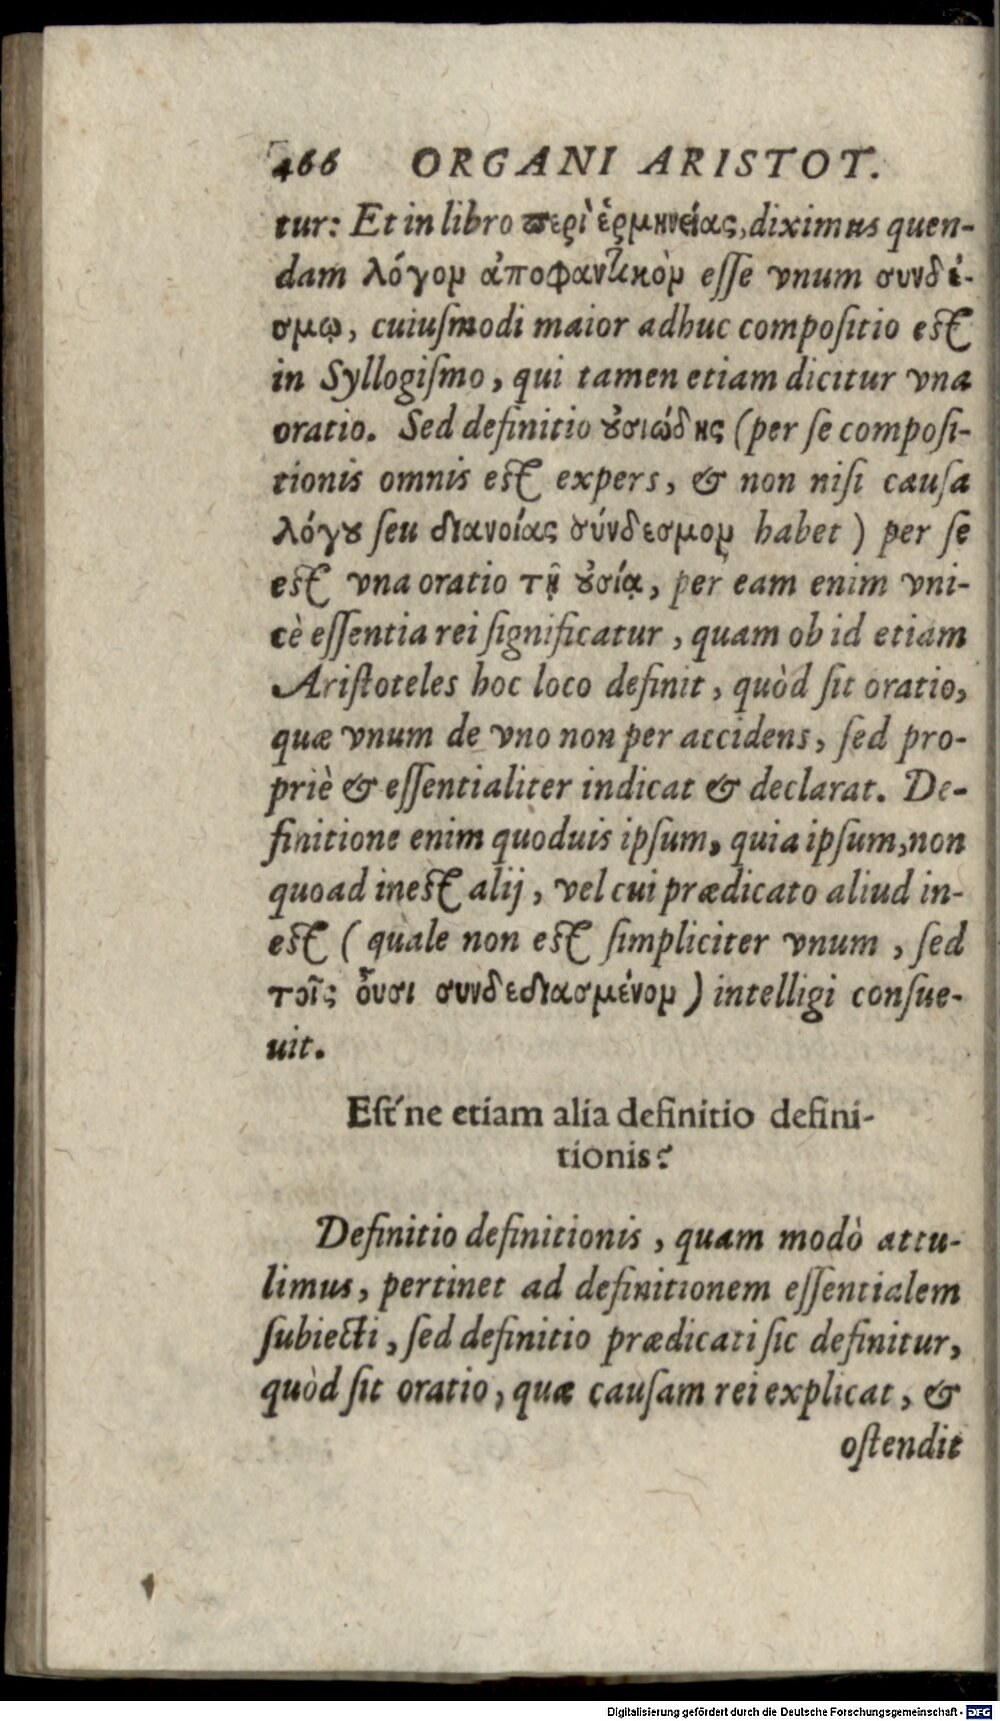 466 ORGANI ARISTOT.
tur: Et in libro περὶ ἑρμηνείας, diximus quen-
dam λόγον ἀποφαντικὸν esse vnum συνδέ-
σμῳ, cuiusmodi maior adhuc compositio est
in Syllogismo, qui tamen etiam dicitur vna
oratio. Sed definitio οὐσιώδης (per se composi-
tionis omnis est expers, & non nisi causa
λόγου seu διανοίας σύνδεσμον habet) per se
est vna oratio τῇ οὐσίᾳ, per eam enim vni-
cè essentia rei significatur, quam ob id etiam
Aristoteles hoc loco definit, quòd sit oratio,
quæ vnum de vno non per accidens, sed pro-
priè & essentialiter indicat & declarat. De-
finitione enim quoduis ipsum, quia ipsum, non
quoad inest alij, vel cui prædicato aliud in-
est (quale non est simpliciter vnum, sed
τοῖς οὖσι συνδεδιασμένον) intelligi consue-
uit.
Est'ne etiam alia definitio defini-
tionis?
Definitio definitionis, quam modò attu-
limus, pertinet ad definitionem essentialem
subiecti, sed definitio prædicati sic definitur,
quòd sit oratio, quæ causam rei explicat, &
ostendit
Digitalisierung gefördert durch die Deutsche Forschungsgemeinschaft - DFG